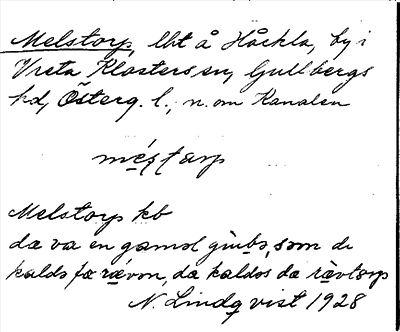 Melstorp, lht å Håckla, by i
Vreta Klosters sn, Gullbergs
hd, Österg. l., n. om Kanalen
méstarp
Melstorp kb
da va en gamol gubə, som di
kaldə fœ rævən, da kaldəs da rævtorp
N. Lindqvist 1928